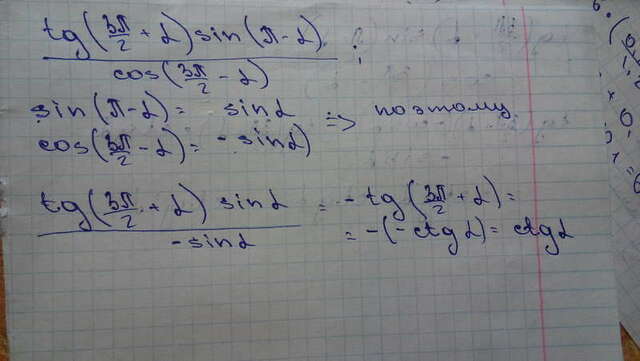 tg(3π/2 + α) sin(π - α) / cos(3π/2 - α) ;
sin(π - α) = sin α => поэтому
cos(3π/2 - α) = - sin α)
tg(3π/2 + α) sin α / - sin α = - tg(3π/2 + α) =
= -(-ctg α) = ctg α